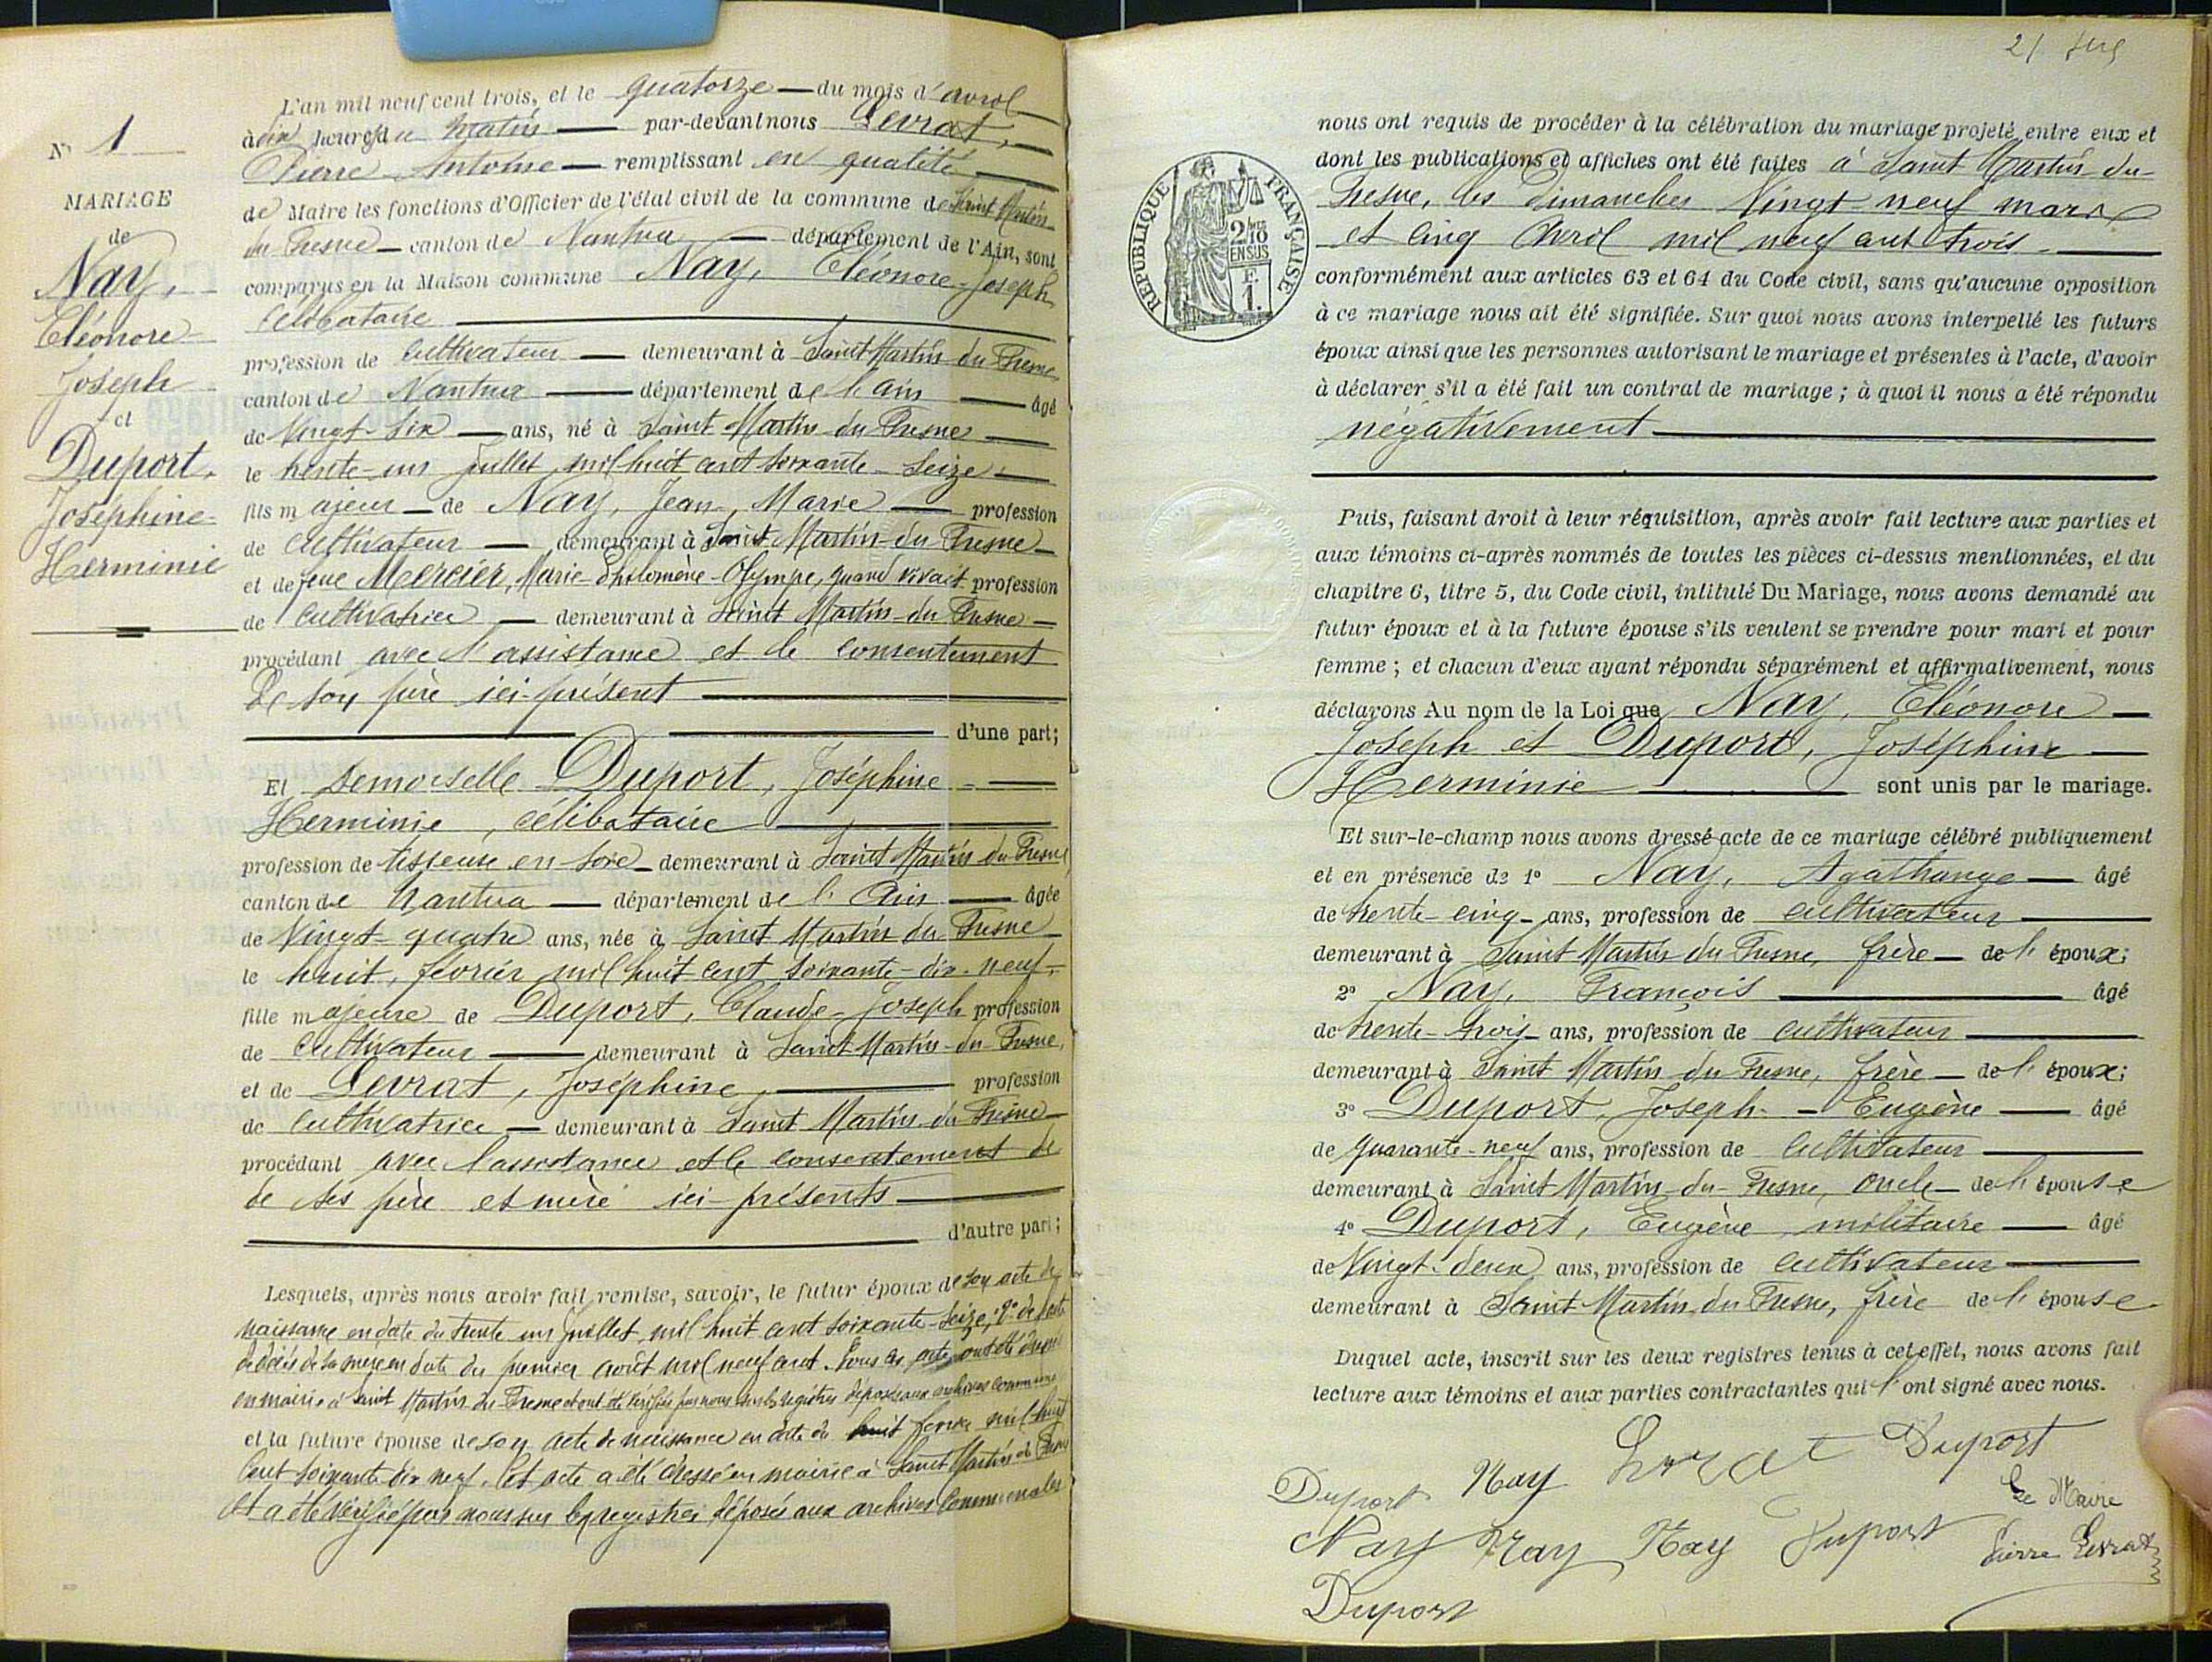 N° 1
MARIAGE
de
Nay,
Eléonore
Joseph
et
Duport,
Joséphine
Herminie
L'an mil neuf cent trois, et le quatorze du mois d'avril
à dix heures du matin par-devant nous Levrat,
Pierre Antoine remplissant en qualité
de Maire les fonctions d'Officier de l'état civil de la commune de Saint Martin
du Fresne canton de Nantua département de l'Ain, sont
comparus en la Maison commune Nay, Eléonore-Joseph
célibataire
profession de cultivateur demeurant à Saint Martin du Fresne
canton de Nantua département de l'Ain âgé
de Vingt-six ans, né à Saint Martin du Fresne
le trente-un Juillet mil huit cent soixante-seize
fils majeur de Nay, Jean, Marie profession
de cultivateur demeurant à Saint Martin-du-Fresne
et de feue Mercier, Marie-Philomène-Olympe, quand vivait profession
de cultivatrice demeurant à Saint Martin-du Fresne
procédant avec l'assistance et le consentement
de son père ici-présent
d'une part;
Et Demoiselle Duport, Joséphine
Herminie, célibataire
profession de tisseuse en soie demeurant à Saint Martin du Fresne
canton de Nantua département de l'Ain âgée
de Vingt-quatre ans, née à Saint Martin du Fresne
le huit, février mil huit cent soixante-dix-neuf,
fille majeure de Duport, Claude-Joseph profession
de cultivateur demeurant à Saint-Martin-du-Fresne,
et de Levrat, Joséphine, profession
de cultivatrice demeurant à Saint Martin du Fresne
procédant avec l'assistance et le consentement de
de ses père et mère ici-présents
d'autre part;
Lesquels, après nous avoir fait remise, savoir, le futur époux de son acte de
naissance en date du trente un Juillet mil huit cent soixante-seize, 2° de l'acte
de décès de sa mère en date du premier août mil neuf cent. Tous ces actes ont été
en mairie à Saint Martin du Fresne et ont été vérifiés par nous sur les registres déposés aux archives
et la future épouse de son acte de naissance en date du huit février mil huit
cent soixante dix neuf. Cet acte a été dressé en mairie à Saint Martin du Fresne
et a été vérifié par nous sur les registres déposés aux archives communales
REPUBLIQUE FRANÇAISE
2/10
EN SUS
E
1.
nous ont requis de procéder à la célébration du mariage projeté entre eux et
dont les publications et affiches ont été faites à Saint Martin-du-
Fresne, les dimanches Vingt neuf mars
et cinq Avril mil neuf cent trois.
conformément aux articles 63 et 64 du Code civil, sans qu'aucune opposition
à ce mariage nous ait été signifiée. Sur quoi nous avons interpellé les futurs
époux ainsi que les personnes autorisant le mariage et présentes à l'acte, d'avoir
à déclarer s'il a été fait un contrat de mariage ; à quoi il nous a été répondu
négativement
Puis, faisant droit à leur réquisition, après avoir fait lecture aux parties et
aux témoins ci-après nommés de toutes les pièces ci-dessus mentionnées, et du
chapitre 6, titre 5, du Code civil, intitulé Du Mariage, nous avons demandé au
futur époux et à la future épouse s'ils veulent se prendre pour mari et pour
femme ; et chacun d'eux ayant répondu séparément et affirmativement, nous
déclarons Au nom de la Loi que Nay, Eléonore
Joseph et Duport, Joséphine
Herminie sont unis par le mariage.
Et sur-le-champ nous avons dressé acte de ce mariage célébré publiquement
et en présence de 1° Nay, Agathange âgé
de trente-cinq ans, profession de cultivateur
demeurant à Saint Martin du Fresne, frère de l'époux;
2° Nay, François âgé
de trente-trois ans, profession de cultivateur
demeurant à Saint Martin du Fresne, frère de l'époux;
3° Duport, Joseph-Eugène âgé
de quarante-neuf ans, profession de cultivateur
demeurant à Saint-Martin-du-Fresne, oncle de l'épouse
4° Duport, Eugène militaire âgé
de Vingt-deux ans, profession de cultivateur
demeurant à Saint Martin du Fresne, frère de l'épouse
Duquel acte, inscrit sur les deux registres tenus à cet effet, nous avons fait
lecture aux témoins et aux parties contractantes qui l'ont signé avec nous.
Duport Nay Levrat Duport
Le Maire
Nay Nay Nay Duport Pierre Levrat
Duport